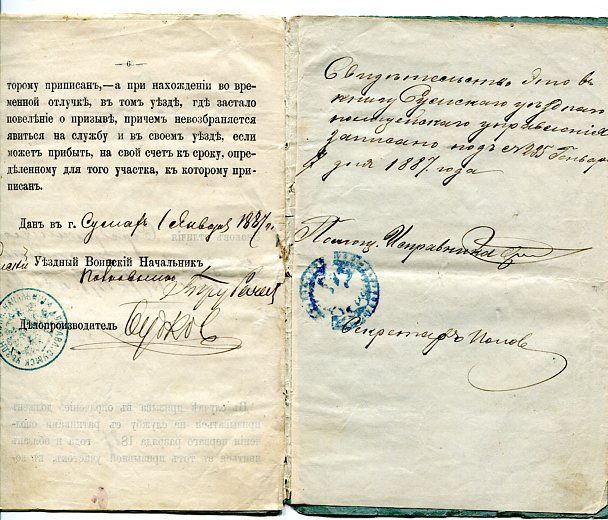 — 6 —
торому приписанъ,—а при нахожденіи во вре-
менной отлучкѣ, въ томъ уѣздѣ, гдѣ застало
повелѣніе о призывѣ, причемъ невозбраняется
явиться на службу и въ своемъ уѣздѣ, если
можетъ прибыть, на свой счетъ къ сроку, опре-
дѣленному для того участка, къ которому при-
писанъ.
Данъ въ г. Сумахъ 1 Января 1887 г.
Уѣздный Воинскій Начальникъ
Полковникъ
Дѣлопроизводитель
Свидѣтельство это въ
книгу Сумскаго уѣзднаго
полицейскаго управленія
записано подъ № 225 Генваря
дня 1887 года
Помощ. Исправника
Секретарь Поповъ